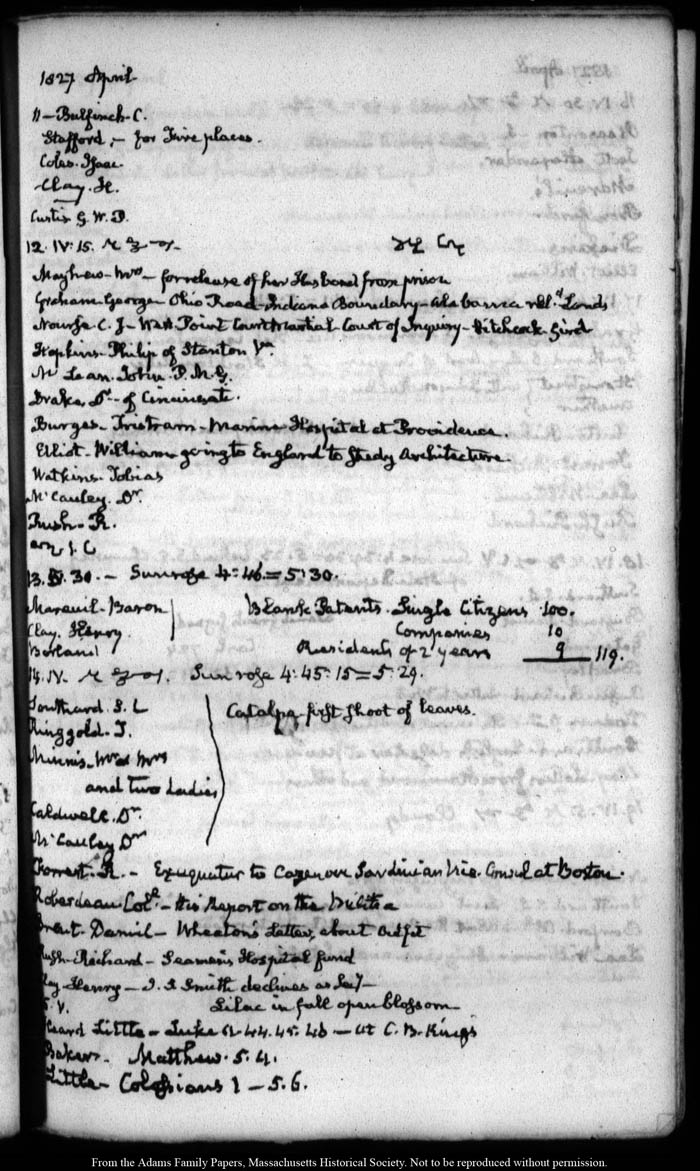 1827 April
11 - Bulfinch C.
Stafford, - for Fire places.
Coles. Isaac
Clay. H.
Curtis G. W. P.
12. IV: 15.
Mayhew - Mrs - for release of her Husband from prison
Graham George - Ohio Road - Indiana Boundary - Alabama rel.d Lands
Nourse C. J - West Point Court Martial Court of Inquiry - Hitchcock Gird
Hopkins. Philip of Stanton Va.
Mc Lean. John. P. M. G.
Drake Dr. - of Cincinnati.
Burges - Tristram - Marine Hospital at Providence.
Elliot - William going to England to Study Architecture
Watkins. Tobias
McCauley. Dr.
Rush. R.
13. IV. 30. - Sun rose 4: 46 = 5: 30.
Mareuil - Baron Blank Patents. Single Citizens 100.
Clay. Henry Companies 10
Borland Residents of 2 years 9 119.
14. IV. Sun rose 4: 45: 15 = 5: 29.
Southard S. L Catalpa first shoot of leaves.
Ringgold. T.
Minnis - Mr & Mrs
and two Ladies
Caldwell. Dr.
McCauley Dr
Forrest. R. - Exequatur to Cazenove Sardinian Vice. Consul at Boston.
Roberdeau Col.l - His Report on the Militia
Brent. Daniel - Wheaton's Letter, about Outfit
Pugh. Richard - Seamen's Hospital fund
Clay Henry - J. S Smith declines as Sec.y -
15. V. Lilac in full open blossom
Heard Little - Luke 12. 44. 45. 46 - at C. B. King's
Baker. Matthew. 5. 4.
Little - Colossians 1 - 5. 6.
From the Adams Family Papers, Massachusetts Historical Society. Not to be reproduced without permission.